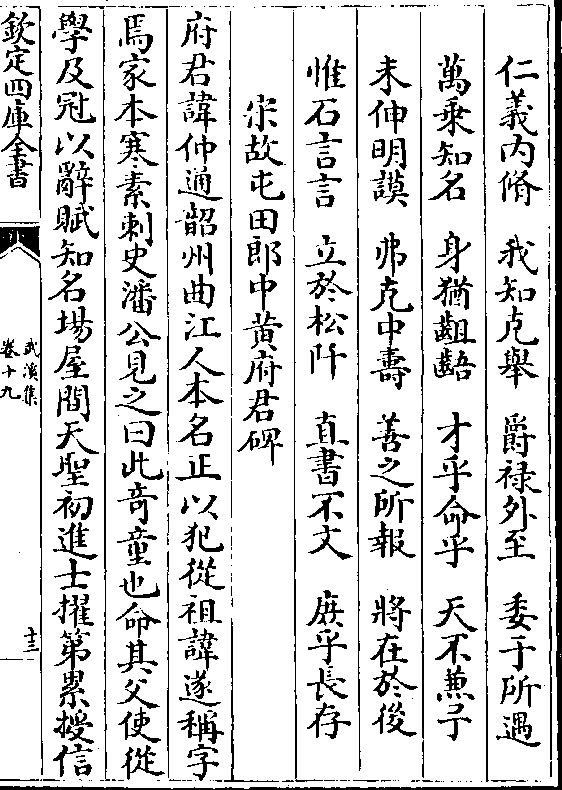 仁義内脩　我知克舉　爵禄外至　委于所遇
萬乗知名　身猶齟齬　才乎命乎　天不兼予
未伸明謨　弗克中壽　善之所報　將在於後
惟石言言　立於松阡　直書不文　庻乎長存
宋故屯田郎中黄府君碑
府君諱仲通韶州曲江人本名正以犯從祖諱遂稱字
焉家本寒素刺史潘公見之曰此奇童也命其父使從
學及冠以辭賦知名場屋間天聖初進士擢第累授信
欽定四庫全書
武溪集
卷十九
十三